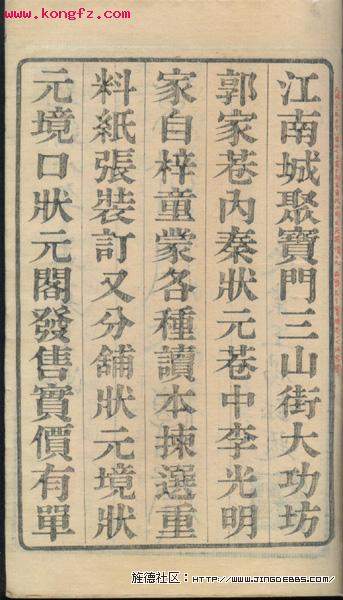 www.kongfz.com
江南城聚寶門三山街大功坊
郭家巷內秦狀元巷中李光明
家自梓童蒙各種讀本揀選重
料紙張裝訂又分舖狀元境狀
元境口狀元閣發售實價有單
旌德社区：HTTP://WWW.JINGDEBBS.COM/